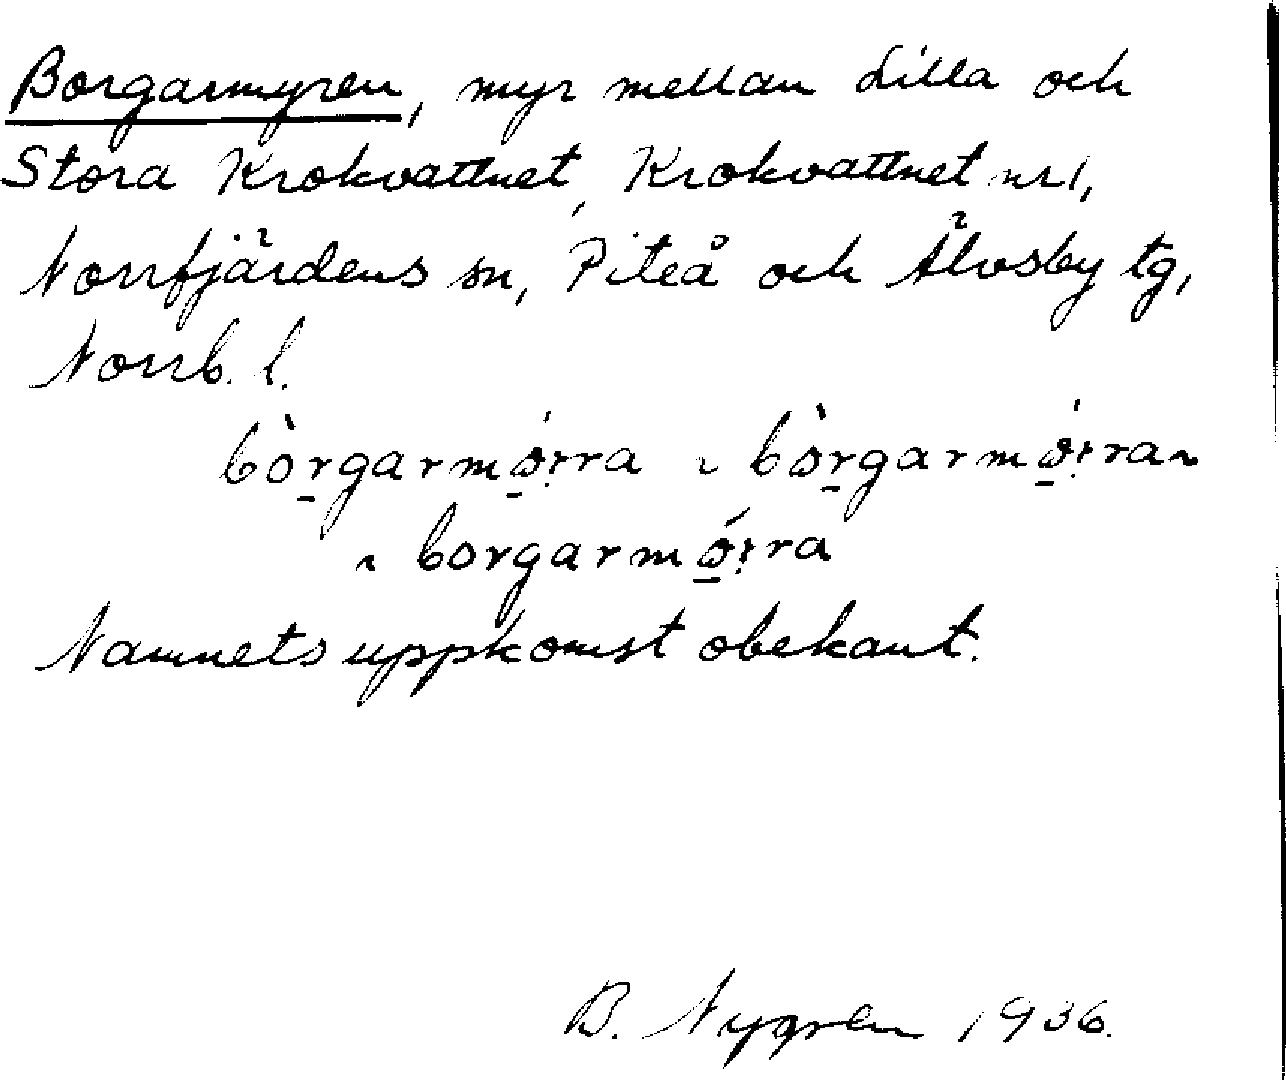 Borgarmyren, myr mellan Lilla och
Stora Krokvattnet, Krokvattnet nr 1,
Norrfjärdens sn, Piteå och Älvsby tg,
Norrb. l.
bòrgarmö̱́i̯rra ~ bòrgarmö̱́i̯ra ~
~ borgarmö̱́i̯ra
Namnets uppkomst obekant.
B. Nygren 1936.